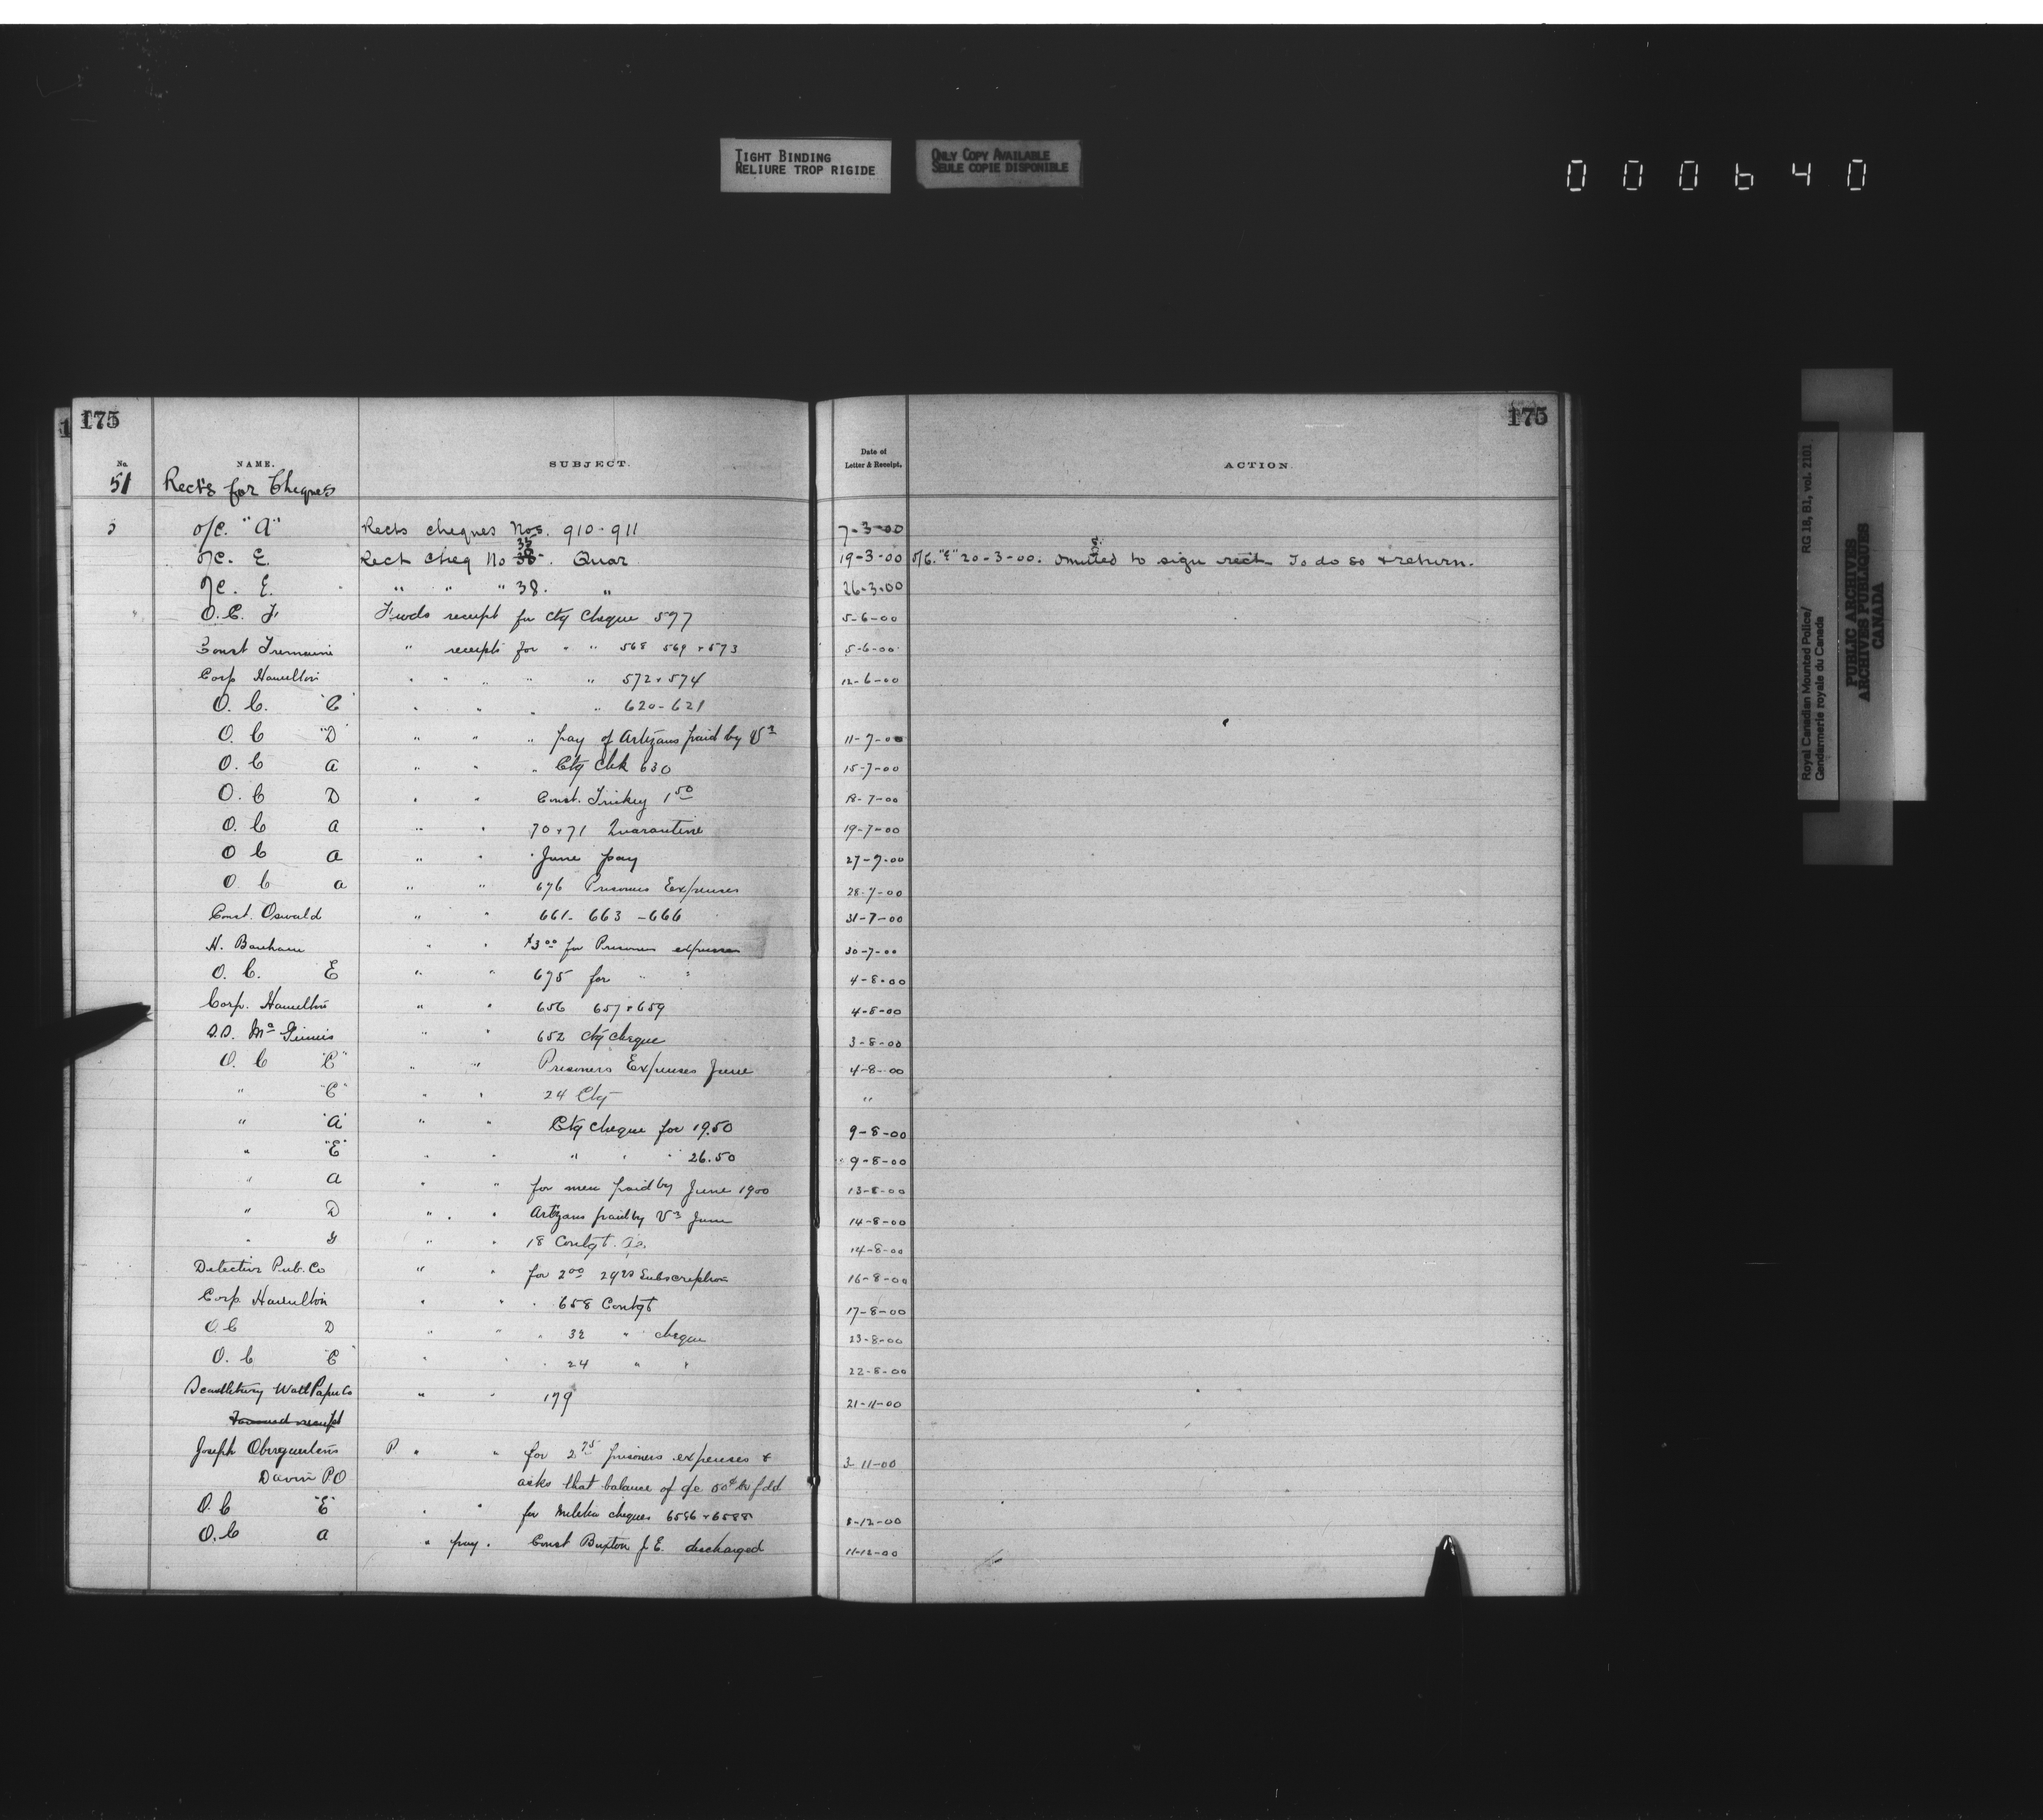 TIGHT BINDING
RELIURE TROP RIGIDE
ONLY COPY AVAILABLE
SEULE COPIE DISPONIBLE
000640
175 175
No. NAME. SUBJECT. Date of Letter & Receipt. ACTION.
51 Rects for Cheques
O/C. "A" Rects cheques Nos. 910-911 7-3-00
O/C. E. Rect Cheq No 35 Quar 19-3-00 O/C. "E" 20-3-00. Omitted to sign rect. To do so & return.
O/C. E. " " " 38. " 26-3-00
O.C. F Fwds receipt for Ctg Cheque 597 5-6-00
Const Tremaine " receipts for " " 568 569 + 573 5-6-00
Corp Hamilton " " " " " 572 + 574 12-6-00
O. C. "C" " " " " 620-621
O. C "D" " " " pay of Artizans paid by V3 11-7-00
O. C A " " " Ctg Chk 630 15-7-00
O. C D " " Const. Trickey 1 50 18-7-00
O. C A " " 70 + 71 Quarantine 19-7-00
O C A " " " June pay 27-7-00
O. C A " " 676 Prisoners Expenses 28-7-00
Const. Oswald " " 661- 663 -666 31-7-00
H. Banham " " $3 00 for Prisoners expenses 30-7-00
O. C. E " " 675 for " " 4-8-00
Corp. Hamilton " " 656 657 + 659 4-8-00
D.D. McGinnis " " 652 Ctg cheque 3-8-00
O. C "C" " " Prisoners Expenses June 4-8-00
" "C" " " 24 Ctg "
" "A" " " Ctg cheque for 19.50 9-8-00
" "E" " " " " " 26.50 9-8-00
" A " " for men paid by June 1900 13-8-00
" D " " Artizans paid by V3 June 14-8-00
" G " " 18 Contgt. 14-8-00
Detective Pub. Co " " for 2 00 Subscription 16-8-00
Corp. Hamilton " " " 658 Contgt 17-8-00
O C D " " " 32 " cheque 23-8-00
O. C "C" " " " 24 " " 22-8-00
Wall Paper Co " " 179 21-11-00
receipt
Joseph P " " for 2 75 prisoners expenses & 3-11-00
Davin P.O asks that balance of a/c 50¢ be fdd
O. C "E" " " for Militia cheques 6586 + 6588 8-12-00
O. C A " pay " Const Buxton J. E. discharged 11-12-00
Royal Canadian Mounted Police/ RG 18, B1, vol. 2101
Gendarmerie royale du Canada
PUBLIC ARCHIVES
ARCHIVES PUBLIQUES
CANADA